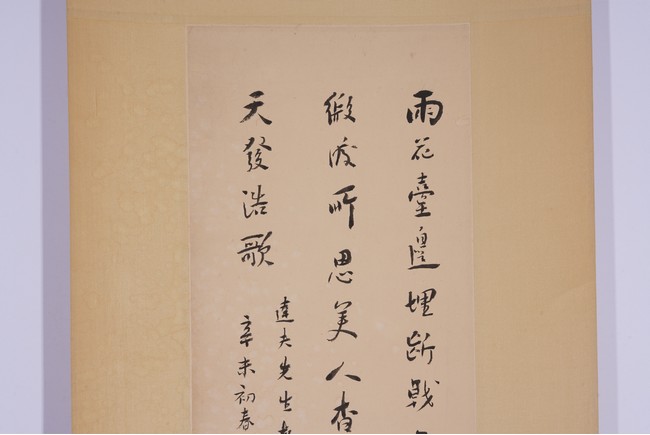 雨花臺邊埋斷戟
微波所思美人杳
天發浩歌
達夫先生
辛未初春